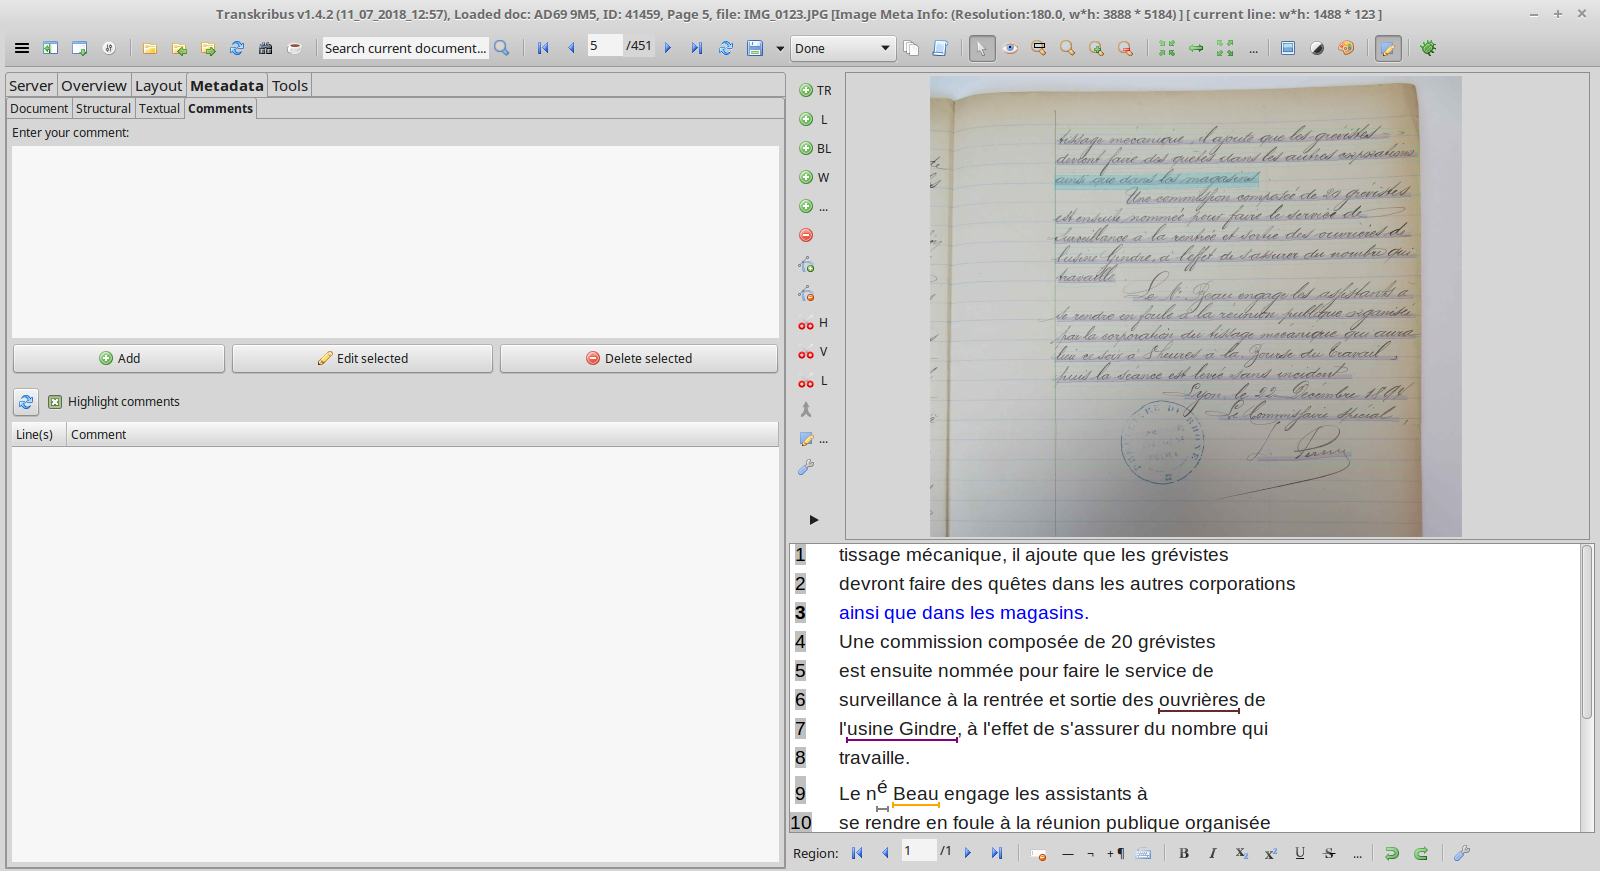 Transkribus v1.4.2 (11_07_2018_12:57), Loaded doc: AD69 9M5, ID: 41459, Page 5, file: IMG_0123.JPG [Image Meta Info: (Resolution:180.0, w*h: 3888 * 5184) ] [ current line: w*h: 1488 * 123 ]
Search current document... 5 /451 Done ...
Server Overview Layout Metadata Tools
Document Structural Textual Comments
Enter your comment:
Add Edit selected Delete selected
Highlight comments
Line(s) Comment
TR
L
BL
W
...
H
V
L
...
tissage mécanique, il ajoute que les grévistes
devront faire des quêtes dans les autres corporations
ainsi que dans les magasins.
Une commission composée de 20 grévistes
est ensuite nommée pour faire le service de
surveillance à la rentrée et sortie des ouvrières de
l'usine Gindre, à l'effet de s'assurer du nombre qui
travaille.
Le Né Beau engage les assistants à
se rendre en foule à la réunion publique organisée
par la corporation du tissage mécanique qui aura
lieu ce soir à 8 heures à la Bourse du Travail,
puis la séance est levée sans incident.
Lyon, le 22 Décembre 189
Le Commissaire spécial,
1 tissage mécanique, il ajoute que les grévistes
2 devront faire des quêtes dans les autres corporations
3 ainsi que dans les magasins.
4 Une commission composée de 20 grévistes
5 est ensuite nommée pour faire le service de
6 surveillance à la rentrée et sortie des ouvrières de
7 l'usine Gindre, à l'effet de s'assurer du nombre qui
8 travaille.
9 Le né Beau engage les assistants à
10 se rendre en foule à la réunion publique organisée
Region: 1 /1 — ¬ +¶ B I X₂ X² U S ...